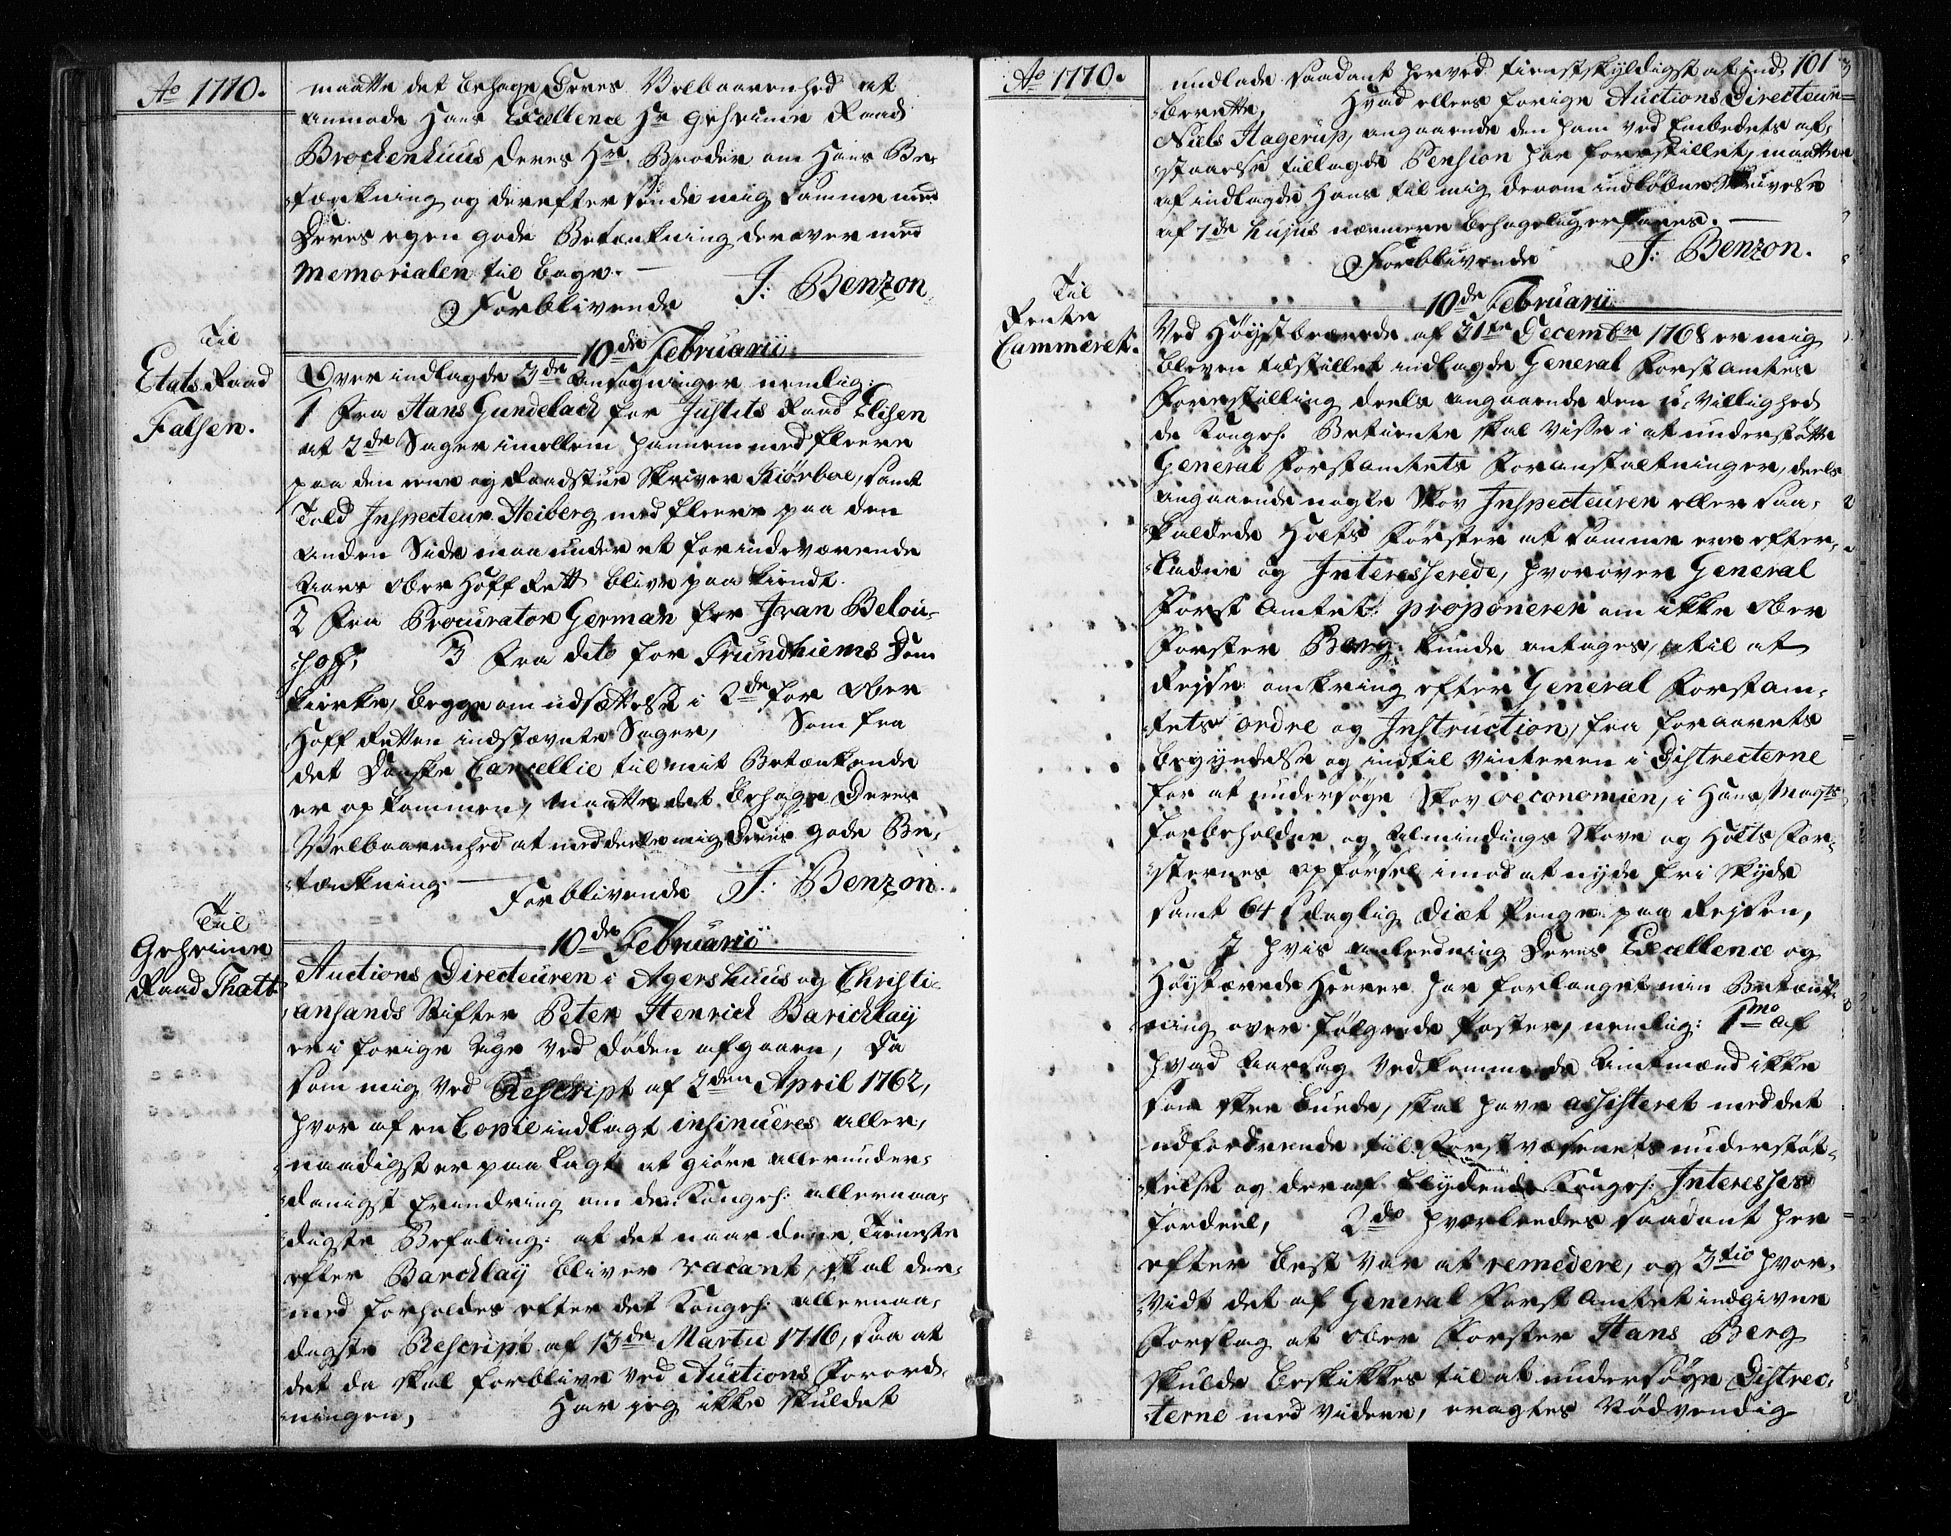 Ao 1770.
maatte det behage Deres Velbaarenhed at
anmode Hans Excellence Hr Geheime Raad
Brockenhuus, Deres Hr Broder om Hans Be-
tænkning og derefter sende mig samme med
Deres egen gode Betænkning derover med
Memorialen til bage.
Forblivende J: Benzon.
10de Februarii
Til
Etats Raad
Falsen.
Over indlagde 3de Ansøgninger nemlig:
1 Fra Hans Gundelach for Justits Raad Elisen
at 2de Sager imellem hannem med fleere
paa den eene og Raadstue Skriver Kiørboe, samt
Told Inspecteur Heiberg med fleere paa den
anden Side maa under et for indeværende
Aars Ober Hoff Rett blive paa kiendt.
2 Fra Procurator German for Ivan Belou-
:hoff, 3 Fra dito for Trundhiems Dom
kirke, begge om udsættelse i 2de for Ober
Hoff Retten indstævnte Sager, Som fra
det Danske Cancellie til mit Betænkende
er op kommen, maatte det behage Deres
Velbaarenhed at meddeele mig Deres gode Be-
:tænkning.
Forblivende J: Benzon.
10de Februarii
Til
Geheime
Raad Thott
Auctions Directeuren i Agershuus og Christi-
:ansands Stifter Peter Henrich Barichlay
er i forige Uge ved Døden afgaaen, Da
som mig ved Rescript af 2den April 1762,
hvor af en Copie indlagt insinueres aller,
naadigst er paa lagt at giøre allerunder-
:danigst Erindring om den Kongel: allernaa-
:digste Befaling: at det naar denne Tieneste
efter Barchlay bliver vacant, skal der-
:med forholdes efter det Kongel: allernaa-
digste Rescript af 13de Martii 1716, saa at
det da skal forblive ved Auctions Forord-
:ningen, Har jeg ikke skuldet
Ao 1770. 101
undlade saadant herved tienstskyldigst at ind-
:berette, Hvad ellers forige Auctions Directeur
Niels Hagerup, angaaende den ham ved Embedets af-
staaelse tillagde Pension har forestillet, maatte
af indlagde Hans til mig derom indløbne Skrivelse
af 7de hujus nærmere behageligt erfares.
Forblivende J: Benzon.
10de Februarii
Til
Rente
Cammeret.
Ved Høystbemeldte af 31te Decembr 1768 er mig
bleven tilstillet indlagde General Forstamtes
Forestilling deels angaaende den u-villighed
de Kongel: Betiente skal viise i at understøtte
General Forstamtets Foranstaltninger, deels
angaaende nogle Skov Inspecteuren eller saa-
:kaldede Holts Førster at samme ere efter-
:ladne og Interesserede, hvorover General
Forst Amtet proponerer om ikke Ober
Forster Berg kunde antages, til at
Rejse omkring efter General Forstam-
:tets ordre og Instruction, fra foraarets
begyndelse og indtil Vinteren i Districterne
for at undersøge Skov oeconomien, i Hans Mayts
forbeholdne og Almindings Skove og Holts For-
:sternes opførsel imod at nyde fri Skyds
samt 64 s daglig Diæt Penge paa Rejsen,
I hvis anledning Deres Excellence og
Høytærede Herrer har forlanget min Betænk-
:ning over følgende Poster, nemlig: 1mo af
hvad aarsag vedkommende Amtmænd ikke
som skee burde, skal have assisteret med det
udfordrende til Forst væsenets understøt-
:telse og deraf flydende Kongel: Interesses
fordeel, 2do hvorledes saadant her
efter best var at remedere, og 3tio hvor-
:vidt det af General Forst Amtet indgivne
Forslag at Ober Forster Hans Berg
skulde beskikkes til at undersøge Distric-
:terne med videre, eragtes Nødvendig